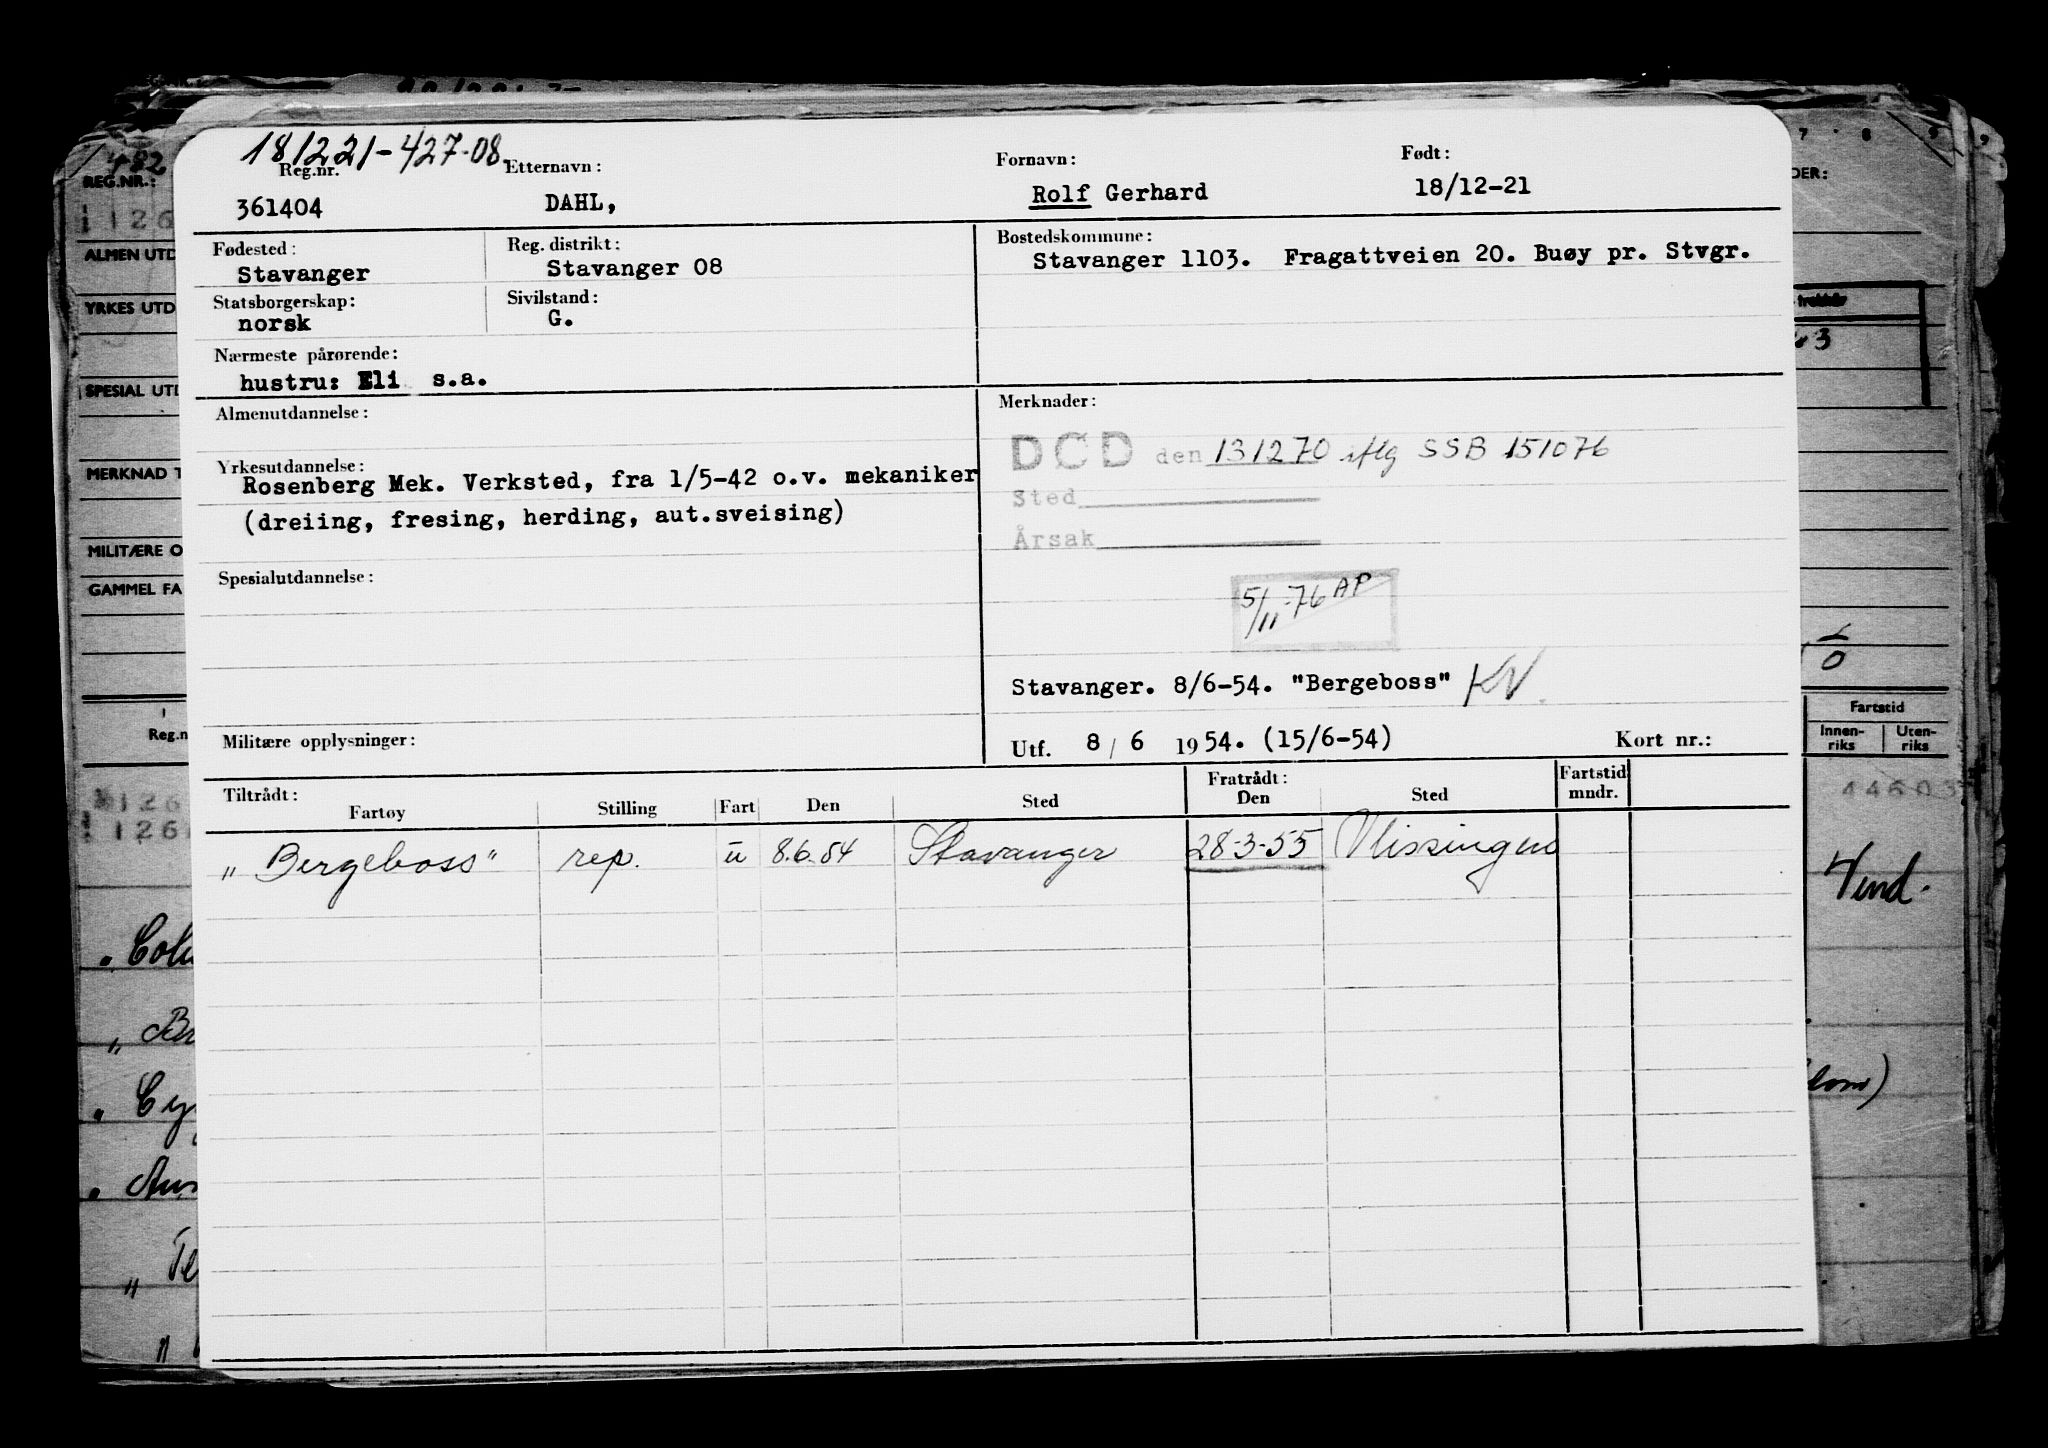 18/221-427-08.
Reg.nr. Etternavn: Fornavn: Født:
361404 DAHL, Rolf Gerhard 18/12-21
Fødested: Reg. distrikt: Bostedskommune:
Stavanger Stavanger 08 Stavanger 1103. Fragattveien 20. Buøy pr. Stvgr.
Statsborgerskap: Sivilstand:
norsk G.
Nærmeste pårørende:
hustru: Eli s.a.
Almenutdannelse: Merknader:
DCD den 131270 iflg SSB 151076
Yrkesutdannelse:
Rosenberg Mek. Verksted, fra 1/5-42 o.v. mekaniker
Sted
(dreiing, fresing, herding, aut.sveising)
Årsak
Spesialutdannelse:
5/11-76 AP
Stavanger. 8/6-54. "Bergeboss" KV.
Militære opplysninger: Utf. 8/6 1954. (15/6-54) Kort nr.:
Tiltrådt: Fratrådt: Fartstid
Fartøy Stilling Fart Den Sted Den Sted mndr.
„Bergeboss" rep. u 8.6.54 Stavanger 28-3-55 Vlissingen
482
REG.NR.:
1126
ALMEN UTD
YRKES UTD
SPESIAL UTD
MERKNAD T
MILITÆRE O
GAMMEL FA
Reg.n
126
126
7 8 9
DER:
3
0
Fartstid
Innen-riks Uten-riks
44603